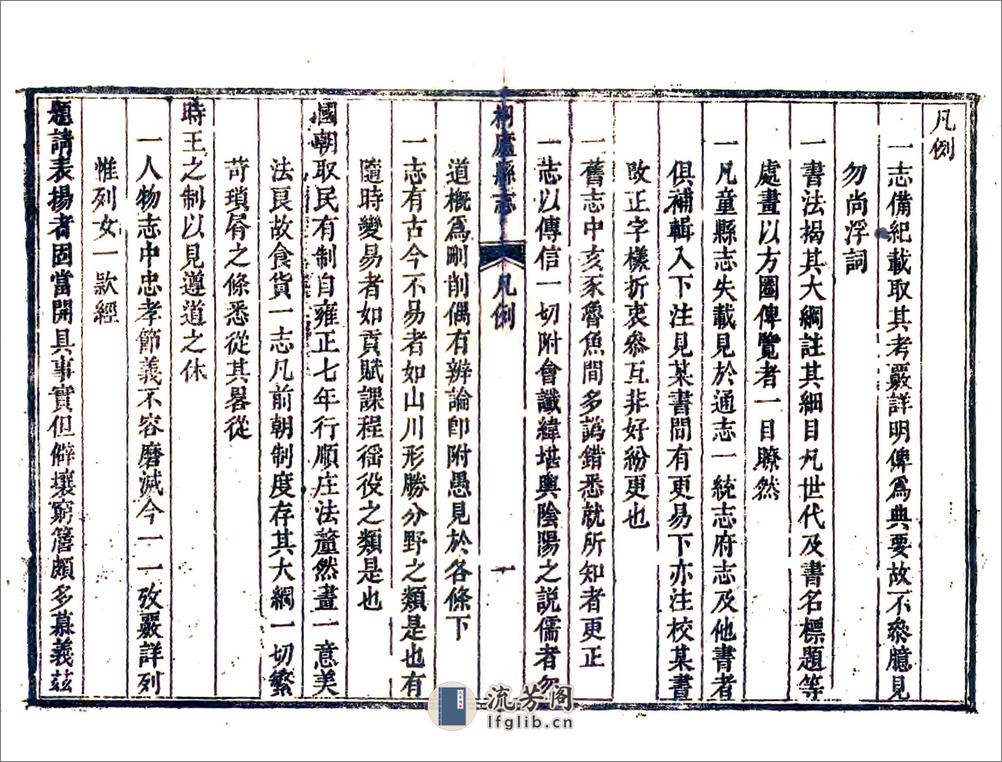 凡例
一志備紀載取其考覈詳明俾爲典要故不叅臆見
勿尚浮詞
一書法揭其大綱註其細目凡世代及書名標題等
處畫以方圈俾覽者一目瞭然
一凡童縣志失載見於通志一統志府志及他書者
俱補輯入下注見某書間有更易下亦注校某書
改正字樣折衷叅互非好紛更也
一舊志中亥豕魯魚間多譌錯悉就所知者更正
一志以傳信一切附會讖緯堪輿陰陽之説儒者勿
桐廬縣志 凡例 一
道概爲刪削偶有辨論卽附愚見於各條下
一志有古今不易者如山川形勝分野之類是也有
隨時變易者如貢賦課程徭役之類是也
國朝取民有制自雍正七年行順庄法釐然畫一意美
法良故食貨一志凡前朝制度存其大綱一切繁
苛瑣屑之條悉從其畧從
時王之制以見遵道之休
一人物志中忠孝節義不容磨滅今一一攷覈詳列
惟列女一款經
題請表揚者固當開具事實但僻壤窮簷頗多慕義茲
流芳阁
lfglib.cn